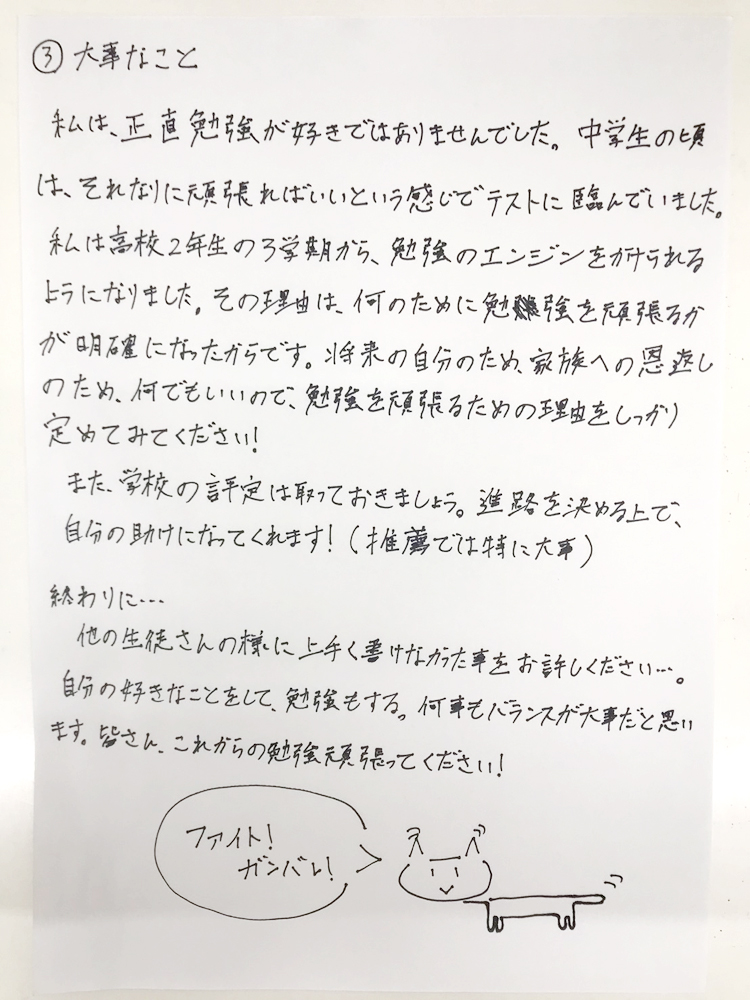 ③ 大事なこと
私は、正直勉強が好きではありませんでした。中学生の頃
は、それなりに頑張ればいいという感じでテストに臨んでいました。
私は高校2年生の3学期から、勉強のエンジンをかけられる
ようになりました。その理由は、何のために勉強を頑張るか
が明確になったからです。将来の自分のため、家族への恩返し
のため、何でもいいので、勉強を頑張るための理由をしっかり
定めてみてください!
また、学校の評定は取っておきましょう。進路を決める上で、
自分の助けになってくれます!(推薦では特に大事)
終わりに…
他の生徒さんの様に上手く書けなかった事をお許しください…。
自分の好きなことをして、勉強もする。何事もバランスが大事だと思い
ます。皆さん、これからの勉強頑張ってください!
ファイト!
ガンバレ!